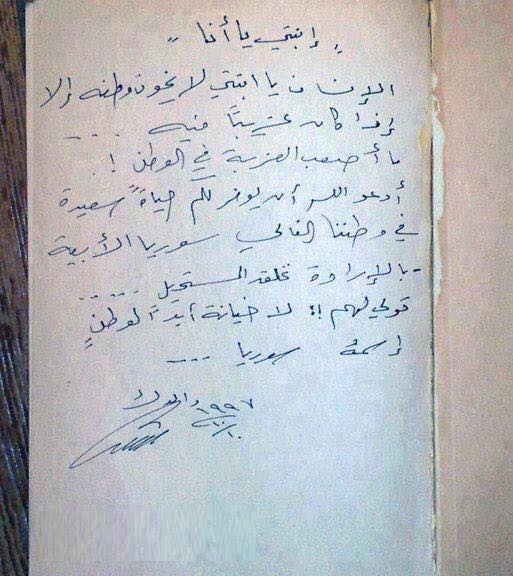 " إبنتي يا أنا "
الإنسان يا ابنتي لا يخون وطنه إلا
إذا كان غريبًا فيه ....
ما أصعب الغربة في الوطن !
أدعو الله أن يوفر لكم حياةً سعيدة
في وطننا الغالي سوريا الأبية
- بالإرادة نخلق المستحيل .....
قولي لهم !: لا خيانة أبدًا لوطنٍ
إسمه سوريا ...
والدك
١٩٩٧